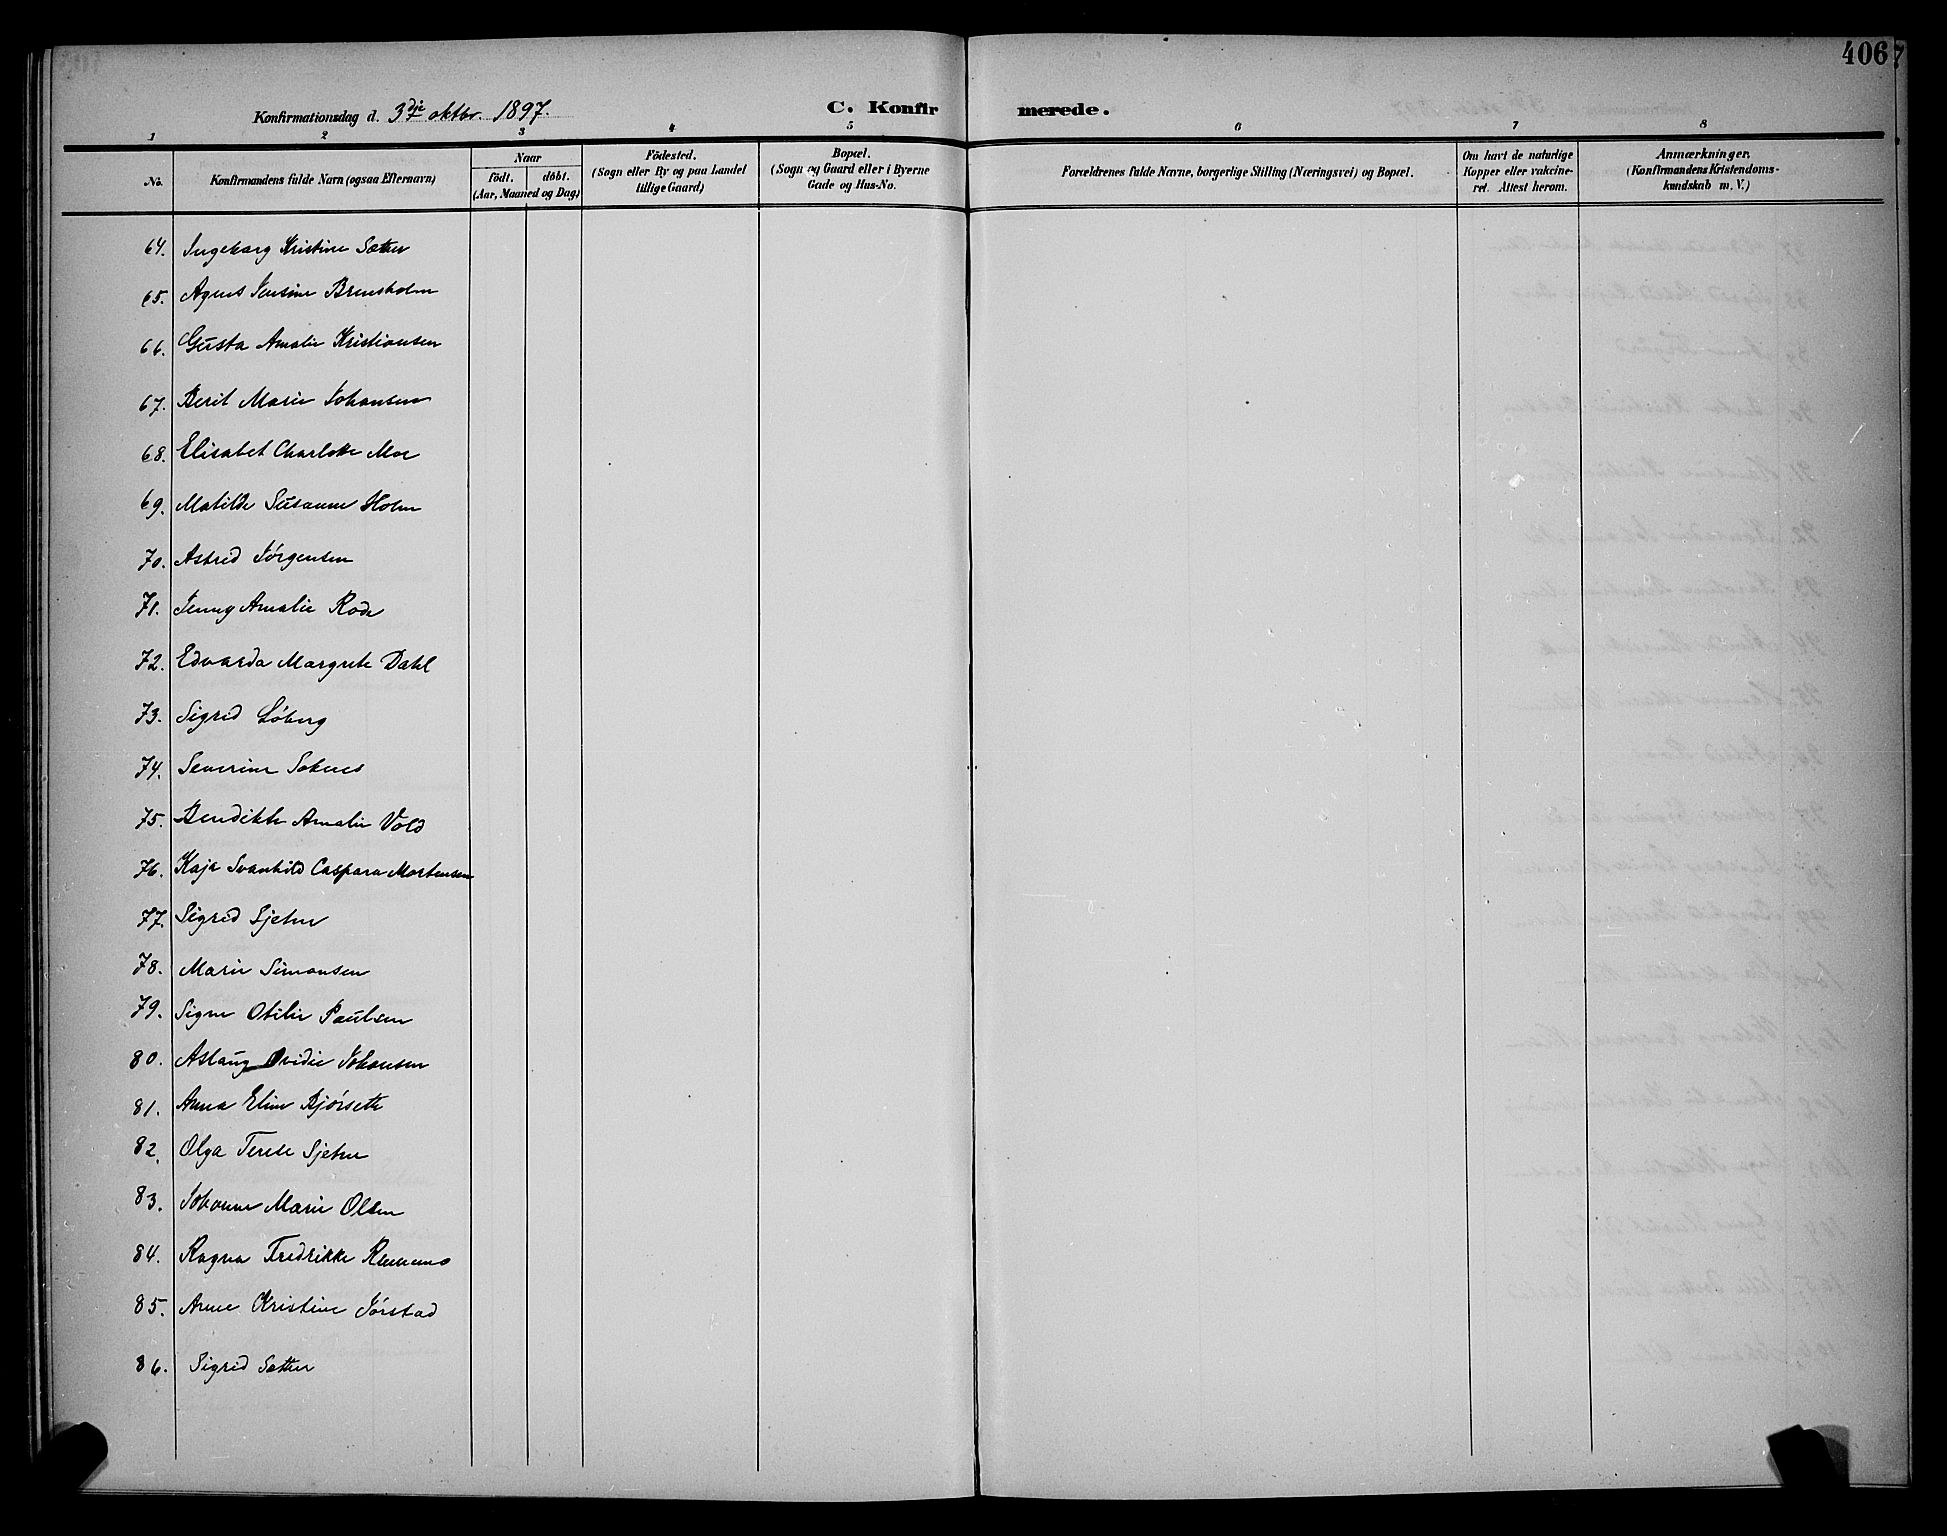 406
Konfirmationsdag d. 3dje oktbr. 1897.
C. Konfirmerede.
1 2 3 4 5 6 7 8
No.
Konfirmandens fulde Navn (ogsaa Efternavn)
Naar
født. døbt.
(Aar, Maaned og Dag)
Fødested.
(Sogn eller By og paa Landet
tillige Gaard)
Bopæl.
(Sogn og Gaard eller i Byerne
Gade og Hus-No.
Forældrenes fulde Navne, borgerlige Stilling (Næringsvei) og Bopæl.
Om havt de naturlige
Kopper eller vakcine-
ret. Attest herom.
Anmærkninger.
(Konfirmandens Kristendoms-
kundskab m. V.)
64. Ingeborg Kristine Sæther
65. Agnes Jensine Brensholm
66. Gusta Amalie Kristiansen
67. Berit Marie Johansen
68. Elisabet Charlotte Moe
69. Matilde Susanne Holm
70. Astrid Jørgensen
71. Jenny Amalie Rode
72. Edvarda Margrete Dahl
73. Sigrid Løberg
74. Severine Soknes
75. Bendikte Amalie Vold
76. Kaja Svanhild Caspara Mortensen
77. Sigrid Sjetne
78. Marie Simonsen
79. Signe Otilie Paulsen
80. Aslaug Ovidie Johansen
81. Anna Eline Bjørseth
82. Olga Terese Sjetne
83. Johanne Marie Olsen
84. Ragna Fredrikke
85. Anne Kristine Jørstad
86. Sigrid Sæther